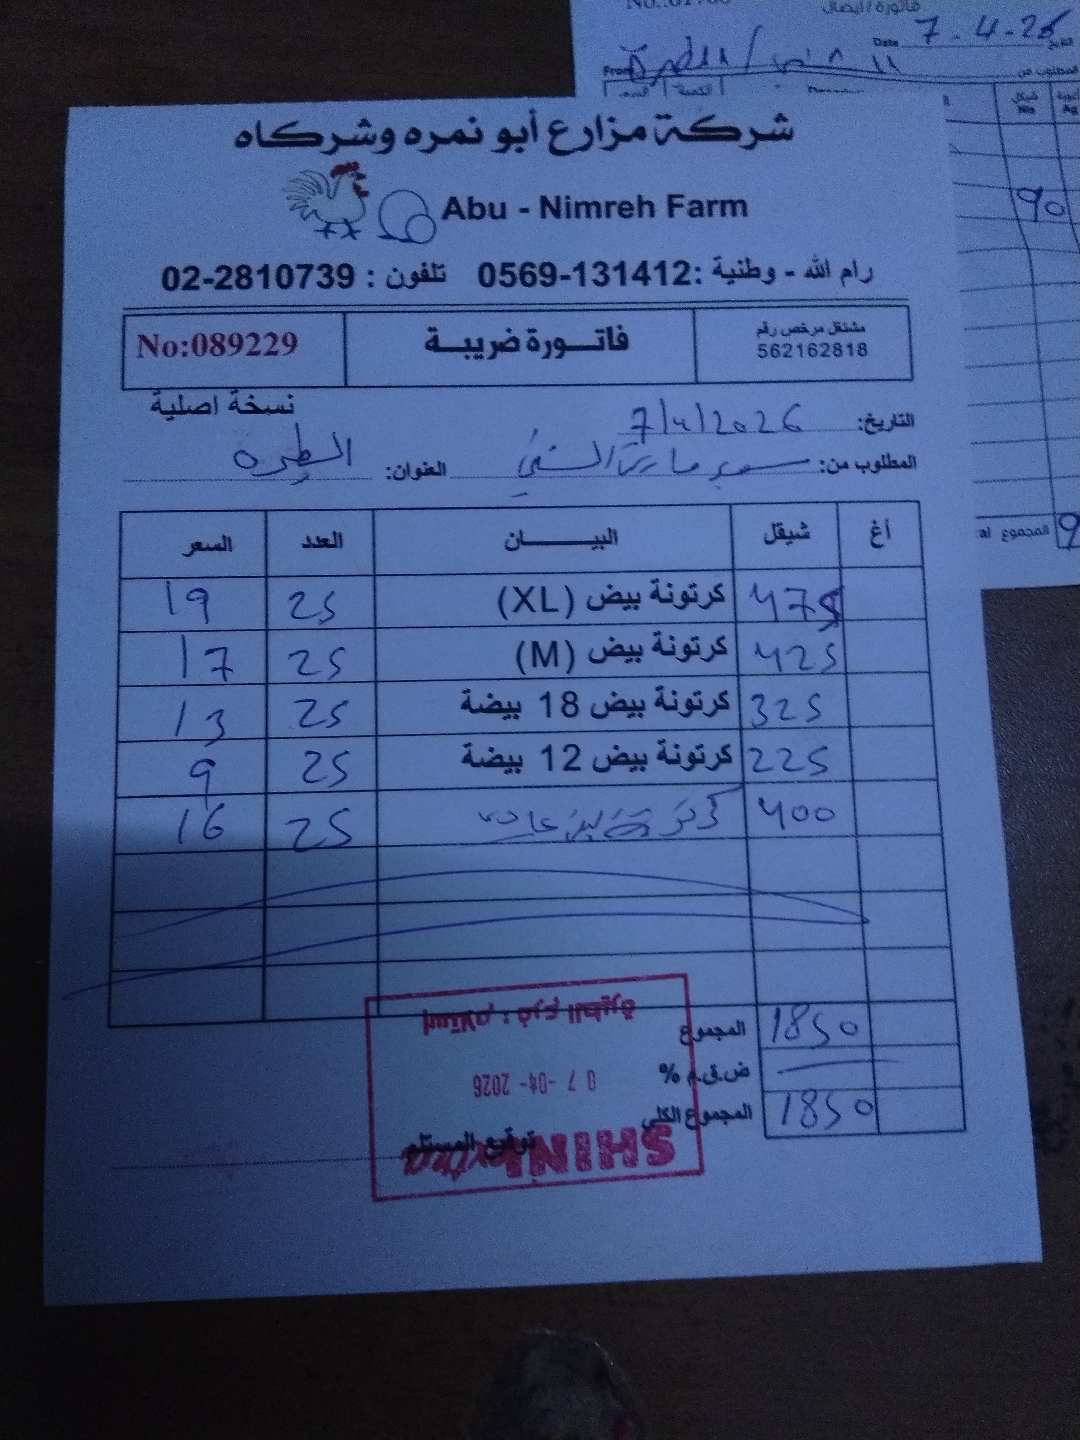 شركة مزارع أبو نمره وشركاه
Abu - Nimreh Farm
رام الله - وطنية :0569-131412 تلفون : 02-2810739
مشتغل مرخص رقم
562162818
فاتـــورة ضريبـــة
No:089229
نسخة اصلية
التاريخ: 7/4/2026
المطلوب من: سوبر ماركت السني العنوان: الطيره
أغ شيقل البيـــــــان العدد السعر
475 كرتونة بيض (XL) 25 19
425 كرتونة بيض (M) 25 17
325 كرتونة بيض 18 بيضة 25 13
225 كرتونة بيض 12 بيضة 25 9
400 كرتونة بيض 25 16
المجموع 1850
ض.ق.م %
المجموع الكلي 1850
توقيع المستلم
إستلام : فرع الطيرة
07-04-2026
SHINI
فاتورة / ايصال
Date 7.4.26 التاريخ
From المطلوب من
السعر الكمية
شيكل
Nis
Ag
90
المجموع